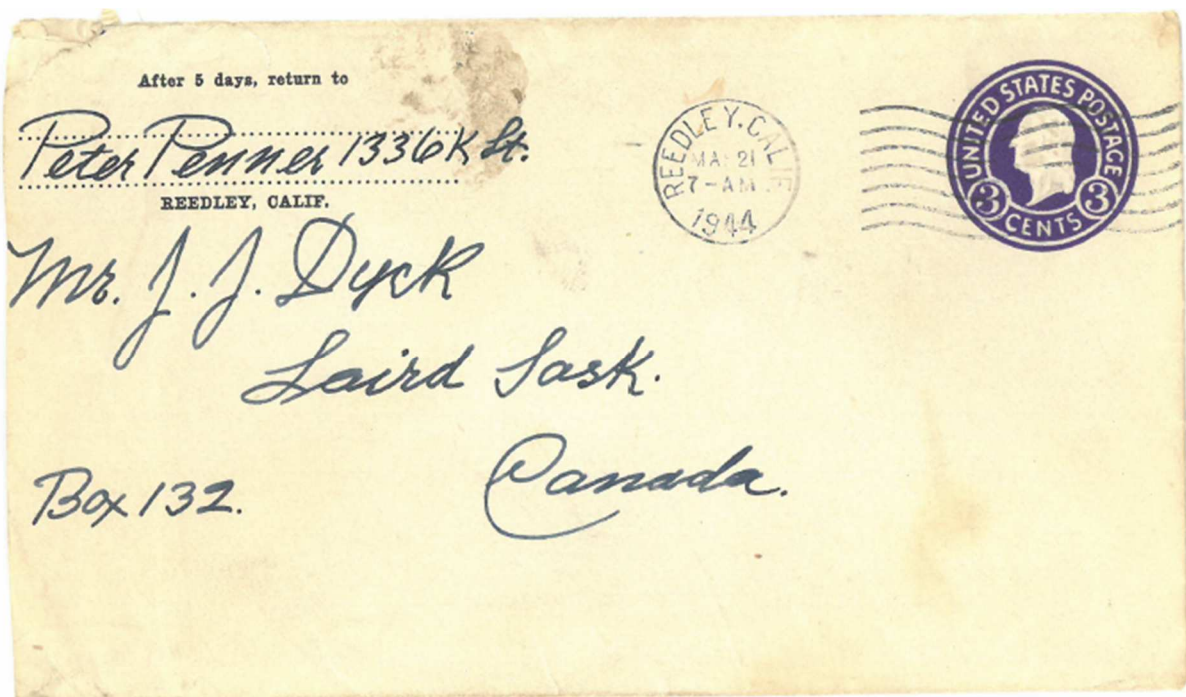 After 5 days, return to
Peter Penner 1336 K St.
REEDLEY, CALIF.
REEDLEY, CALIF.
MAR 21
7-AM
1944
UNITED STATES POSTAGE
3 CENTS 3
Mr. J. J. Dyck
Laird Sask.
Canada.
Box 132.